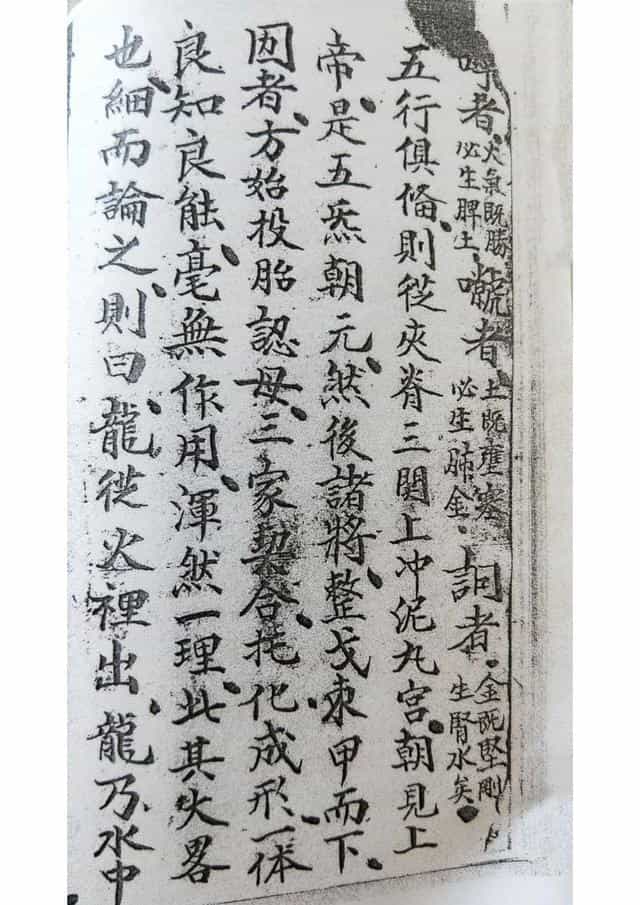 者火氣既勝必生脾土者土既壅塞必生肺金訶者金既堅剛生腎水矣
五行俱俻則從夾脊三関上冲泥丸宮朝見上
帝是五炁朝元然後諸將整戈束甲而下
囙者方始投胎認母三家契合托化成形一体
良知良能毫無作用渾然一理此其大畧
也細而論之則曰龍從火裡出龍乃水中